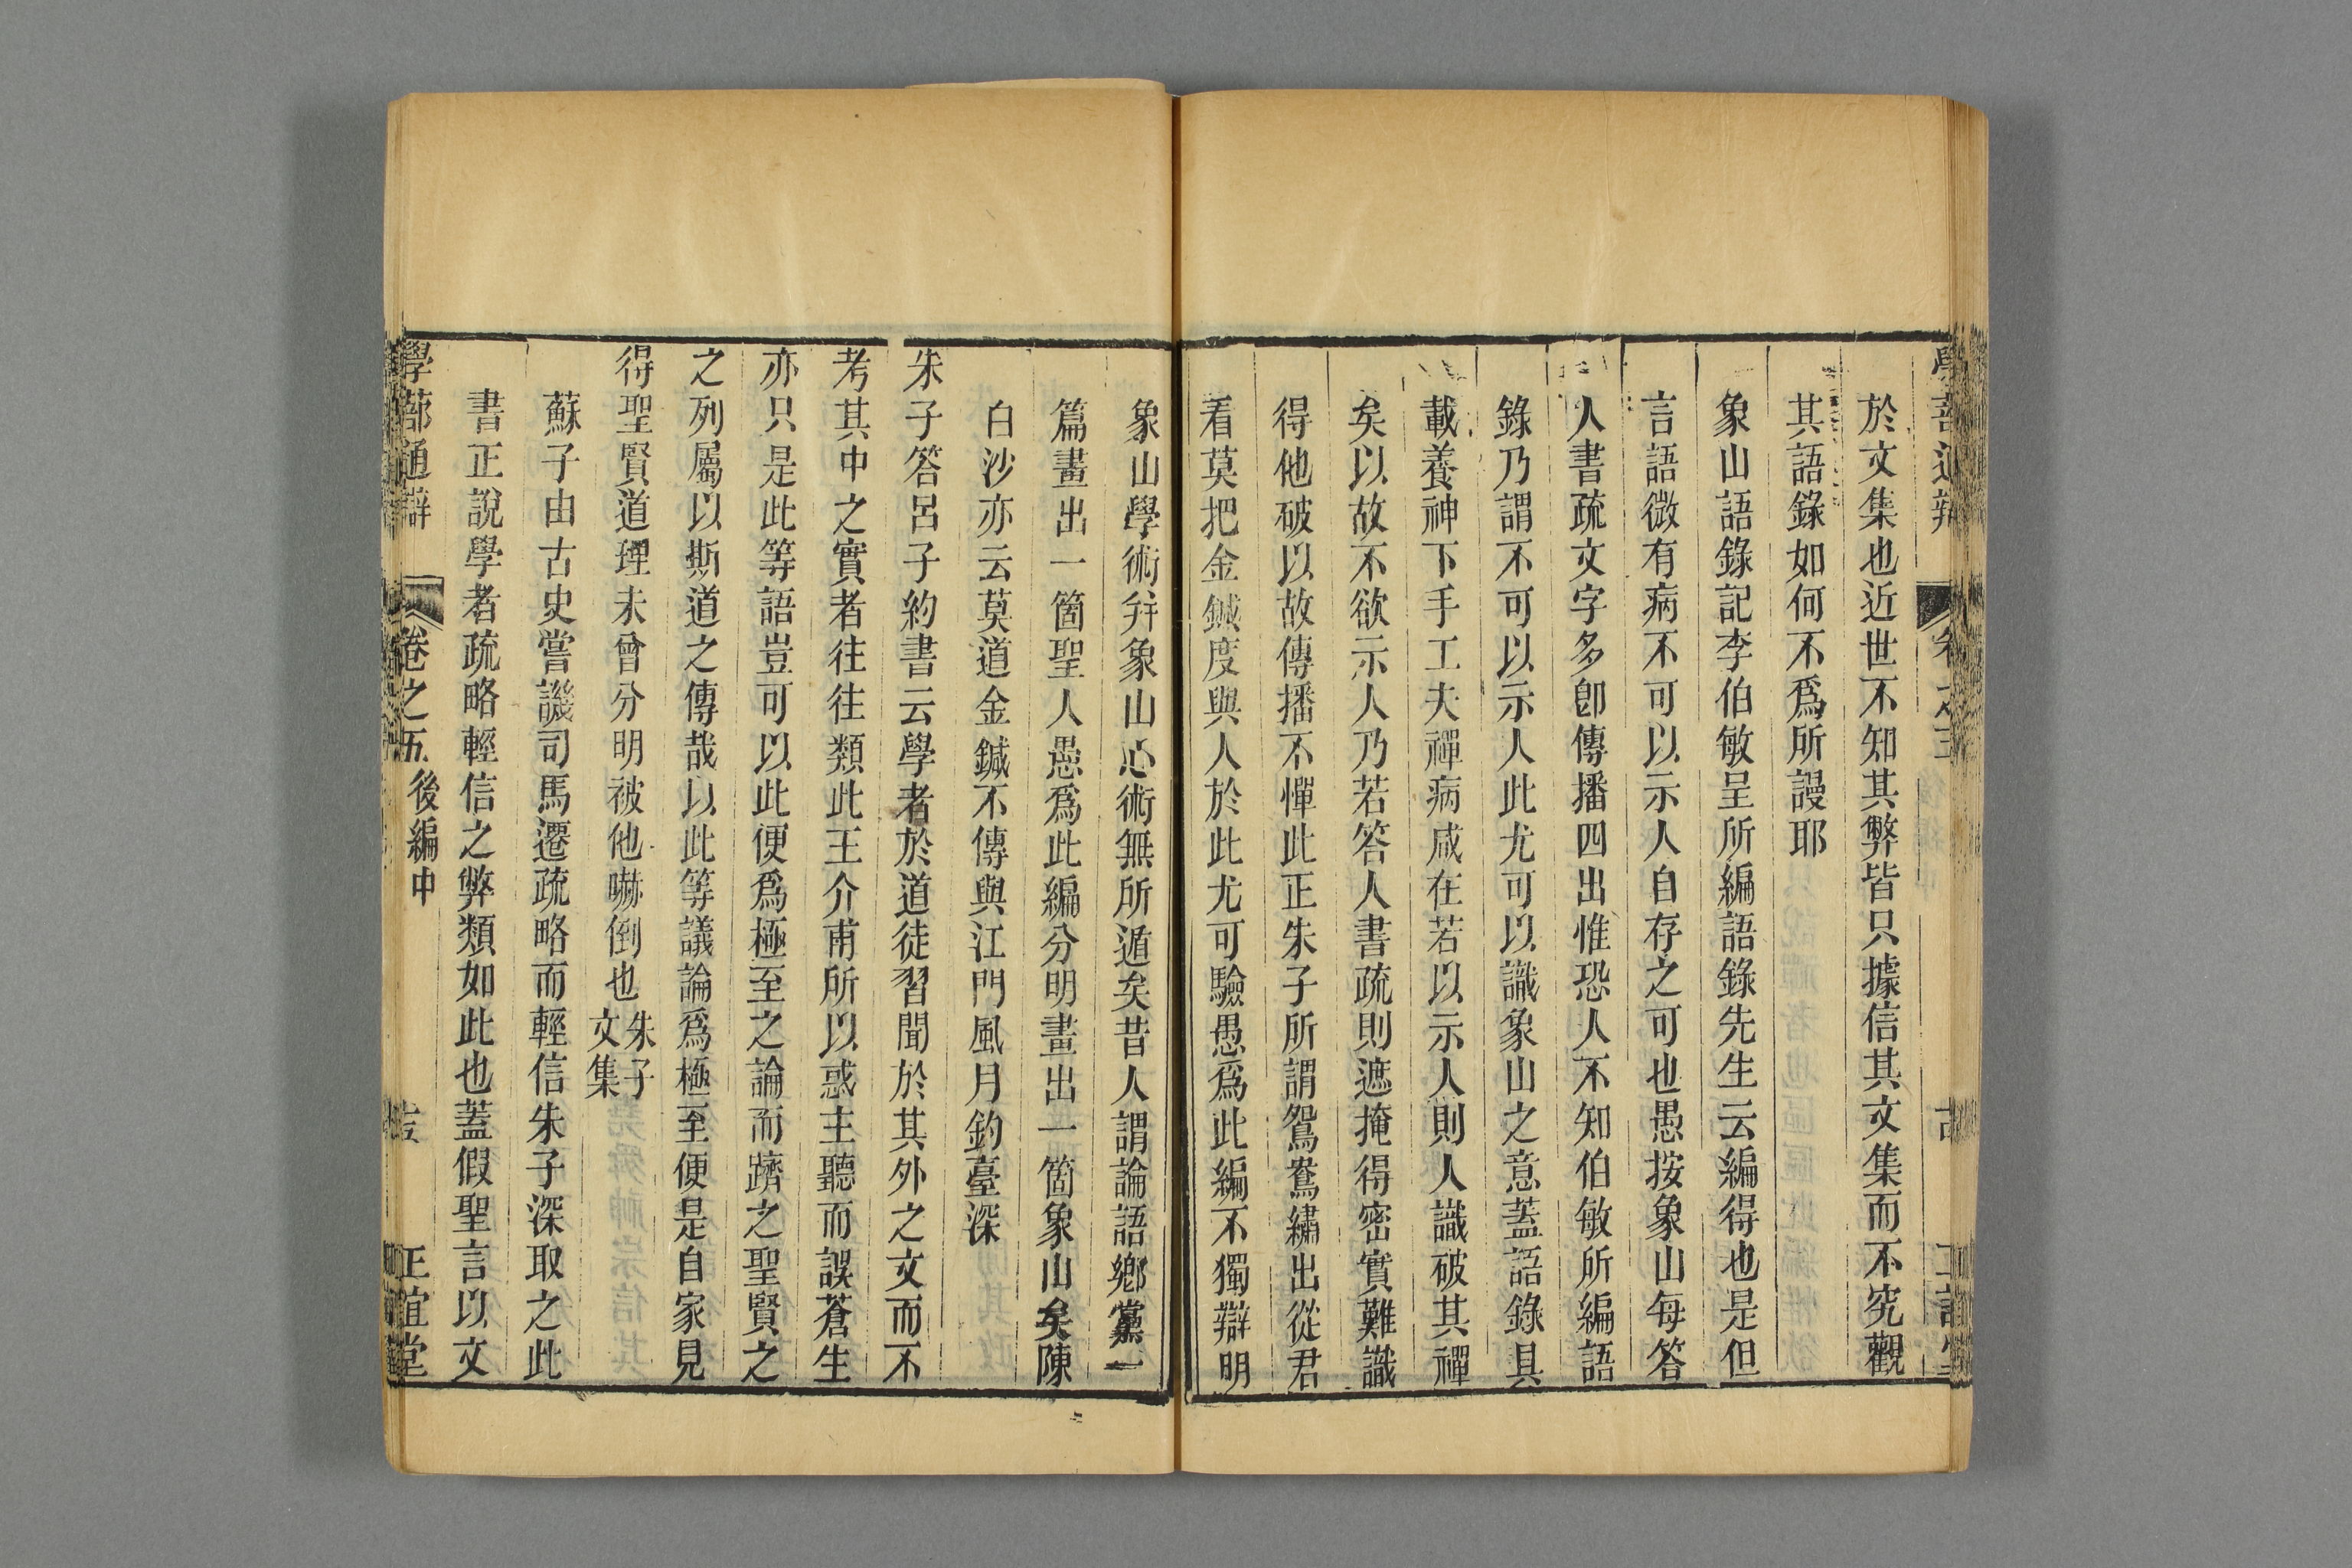 於文集也近世不知其弊皆只據信其文集而不究觀
其語錄如何不爲所謾耶
象山語錄記李伯敏呈所編語錄先生云編得也是但
言語微有病不可以示人自存之可也愚按象山每答
人書疏文字多卽傳播四出惟恐人不知伯敏所編語
錄乃謂不可以示人此尤可以識象山之意蓋語錄具
載養神下手工夫禪病咸在若以示人則人識破其禪
矣以故不欲示人乃若答人書疏則遮掩得密實難識
得他破以故傳播不憚此正朱子所謂鴛鴦繡出從君
看莫把金鍼度與人於此尤可驗愚爲此編不獨辯明
象山學術并象山心術無所遁矣昔人謂論語鄉黨一
篇畫出一箇聖人愚爲此編分明畫出一箇象山矣陳
白沙亦云莫道金鍼不傳與江門風月釣臺深
朱子答呂子約書云學者於道徒習聞於其外之文而不
考其中之實者往往類此王介甫所以惑主聽而誤蒼生
亦只是此等語豈可以此便爲極至之論而躋之聖賢之
之列屬以斯道之傳哉以此等議論爲極至便是自家見
得聖賢道理未曾分明被他嚇倒也朱子文集
蘇子由古史嘗譏司馬遷疏略而輕信朱子深取之此
書正說學者疏略輕信之弊類如此也蓋假聖言以文
學蔀通辯 卷之五 後編中 正誼堂